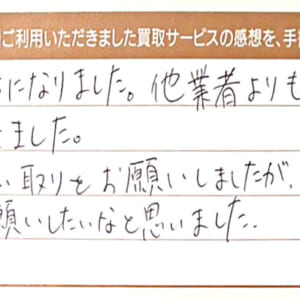 ご利用いただきました買取サービスの感想を、手
になりました。他業者よりも
ました。
取りをお願いしましたが、
願いしたいなと思いました.